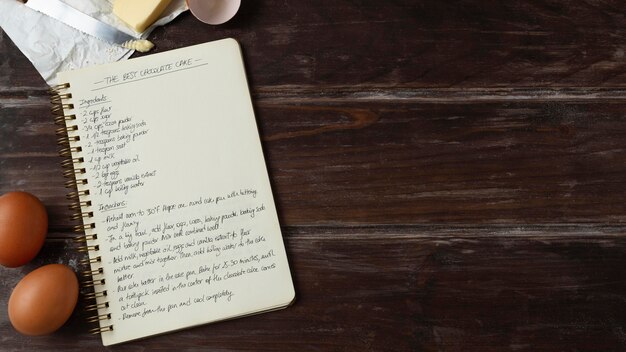 - THE BEST CHOCOLATE CAKE -
Ingredients:
- 2 cups flour
- 2 cups sugar
- 3/4 cups cocoa powder
- 1 1/2 teaspoons baking soda
- 2 teaspoons baking powder
- 1 teaspoon salt
- 1 cup milk
- 1/2 cup vegetable oil
- 2 large eggs
- 2 teaspoons vanilla extract
- 1 cup boiling water
Instructions:
- Preheat oven to Prepare one round cake pan with buttering
and flouring
- In a big bowl, add flour, sugar, cocoa, baking powder, baking soda
and baking powder. Mix until combined well
- Add milk, vegetable oil, eggs and vanilla extract to flour
mixture and mix together. Then, add boiling water to the cake
batter.
- Pour cake batter in the cake pan. Bake for minutes, until
a toothpick inserted in the center of the chocolate cake comes
out clean.
- Remove from the pan and cool completely.